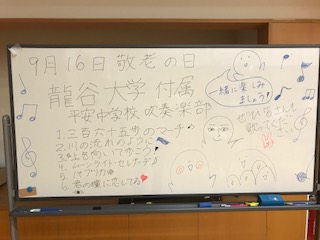 9月16日 敬老の日
龍谷大学 付属
平安中学校 吹奏楽部
一緒に楽しみ
ましょう!
ぜひ皆さんも
歌ってください
1.三百六十五歩のマーチ
2.川の流れのように
3.上を向いて歩こう
4.ムーンライト・セレナーデ♪
5.パプリカ
6.君の瞳に恋してる♥